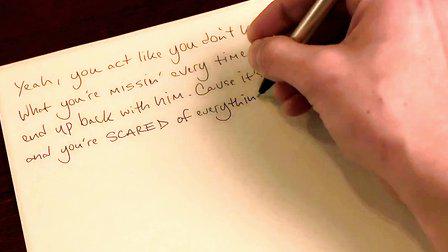 Yeah, you act like you don't
what you're missin' every time
end up back with him. Cause it's
and you're SCARED of everythin